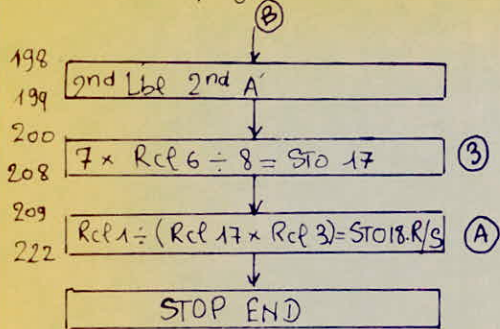 B
198
2nd Lbl 2nd A'
199
200
7 × Rcl 6 ÷ 8 = STO 17
3
208
209
Rcl 1 ÷ (Rcl 17 × Rcl 3) = STO 18. R/S
A
222
STOP END